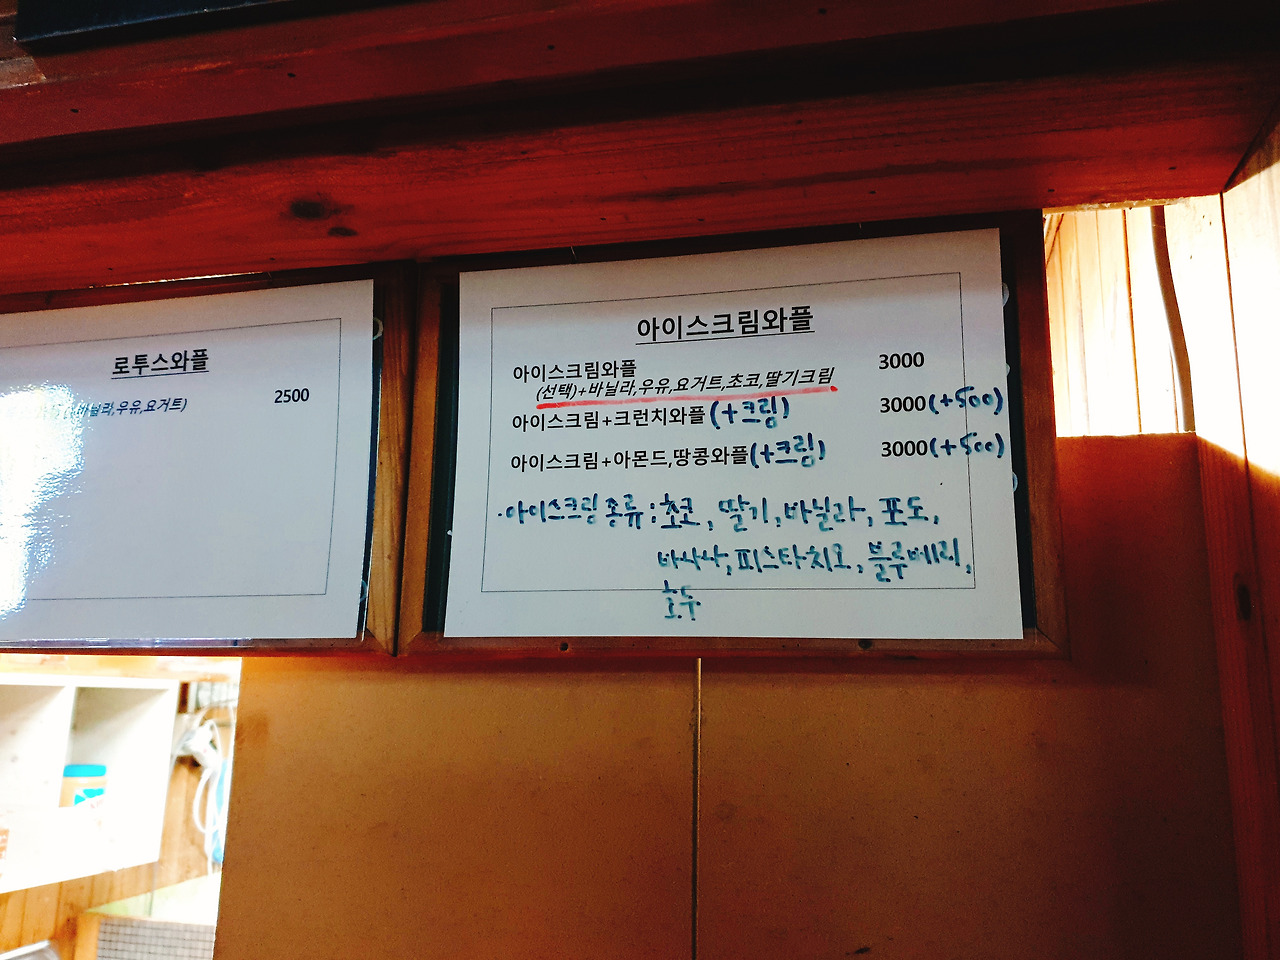 로투스와플
2500
바닐라,우유,요거트)
아이스크림와플
아이스크림와플 3000
(선택)+바닐라,우유,요거트,초코,딸기크림
아이스크림+크런치와플(+크림) 3000(+500)
아이스크림+아몬드,땅콩와플(+크림) 3000(+500)
·아이스크림 종류: 초코, 딸기, 바닐라, 포도,
바사사, 피스타치오, 블루베리,
호두